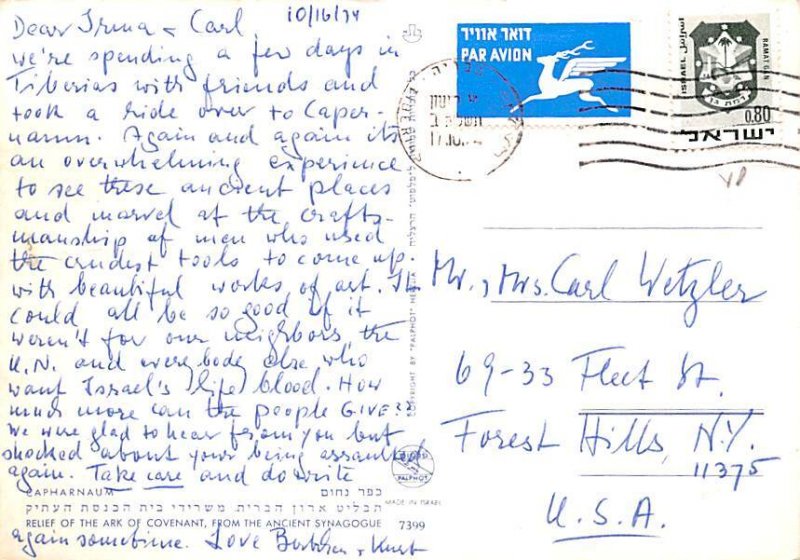 10/16/74
Dear Irma + Carl
we're spending a few days in
Tiberias with friends and
took a ride over to Caper-
naum. Again and again its
an overwhelming experience
to see these ancient places
and marvel at the crafts-
manship of men who used
the crudest tools to come up
with beautiful works of art. It
could all be so good if it
weren't for our neighbors, the
U.N. and everybody else who
want Israel's life blood. How
much more can the people GIVE???
We were glad to hear from you but
shocked about your being assaulted
again. Take care and do write
CAPHARNAUM כפר נחום
תבליט ארון הברית. משרידי בית הכנסת העתיק
RELIEF OF THE ARK OF COVENANT, FROM THE ANCIENT SYNAGOGUE 7399
again sometime. Love Barbara + Kurt
COPYRIGHT BY "PALPHOT" HERZLIA
PALPHOT
MADE IN ISRAEL
דואר אוויר
PAR AVION
اسرائيل
ISRAEL
RAMAT GAN
רמת גן
0.80
ישראל
Mr. + Mrs. Carl Wetzler
69-33 Fleet St.
Forest Hills, N.Y.
11375
U.S.A.